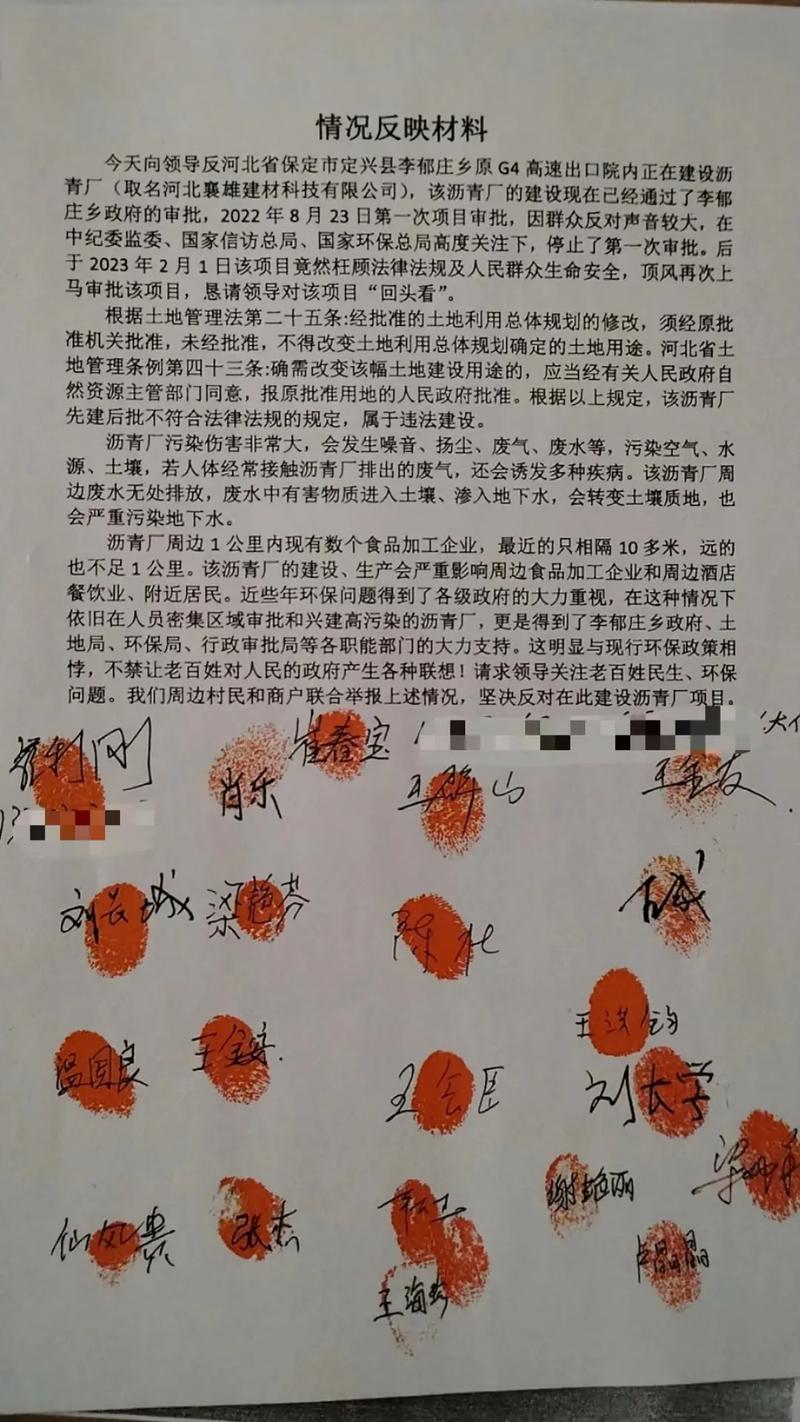 情况反映材料
今天向领导反河北省保定市定兴县李郁庄乡原 G4 高速出口院内正在建设沥
青厂（取名河北襄雄建材科技有限公司），该沥青厂的建设现在已经通过了李郁
庄乡政府的审批，2022 年 8 月 23 日第一次项目审批，因群众反对声音较大，在
中纪委监委、国家信访总局、国家环保总局高度关注下，停止了第一次审批。后
于 2023 年 2 月 1 日该项目竟然枉顾法律法规及人民群众生命安全，顶风再次上
马审批该项目，恳请领导对该项目“回头看”。
根据土地管理法第二十五条:经批准的土地利用总体规划的修改，须经原批
准机关批准，未经批准，不得改变土地利用总体规划确定的土地用途。河北省土
地管理条例第四十三条:确需改变该幅土地建设用途的，应当经有关人民政府自
然资源主管部门同意，报原批准用地的人民政府批准。根据以上规定，该沥青厂
先建后批不符合法律法规的规定，属于违法建设。
沥青厂污染伤害非常大，会发生噪音、扬尘、废气、废水等，污染空气、水
源、土壤，若人体经常接触沥青厂排出的废气，还会诱发多种疾病。该沥青厂周
边废水无处排放，废水中有害物质进入土壤、渗入地下水，会转变土壤质地，也
会严重污染地下水。
沥青厂周边 1 公里内现有数个食品加工企业，最近的只相隔 10 多米，远的
也不足 1 公里。该沥青厂的建设、生产会严重影响周边食品加工企业和周边酒店
餐饮业、附近居民。近些年环保问题得到了各级政府的大力重视，在这种情况下
依旧在人员密集区域审批和兴建高污染的沥青厂，更是得到了李郁庄乡政府、土
地局、环保局、行政审批局等各职能部门的大力支持。这明显与现行环保政策相
悖，不禁让老百姓对人民的政府产生各种联想！请求领导关注老百姓民生、环保
问题。我们周边村民和商户联合举报上述情况，坚决反对在此建设沥青厂项目。
崔春宝
肖乐
王金友
刘长城
梁艳芬
王洪钧
温国良
王金安
王会臣
刘大学
谢艳丽
张杰
卢晶晶